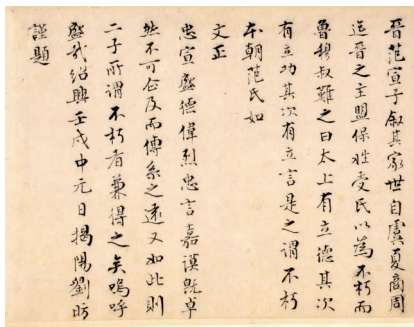 晉范宣子叙其家世自虞夏商周
迄晉之主盟保姓受民以為不朽而
魯穆叔難之曰太上有立德其次
有立功其次有立言是之謂不朽
本朝范氏如
文正
忠宣盛德偉烈忠言嘉謨既卓
然不可企及而傳系之遠又如此則
二子所謂不朽者兼得之矣嗚呼
盛哉紹興壬戌中元日揭陽劉昉
謹題